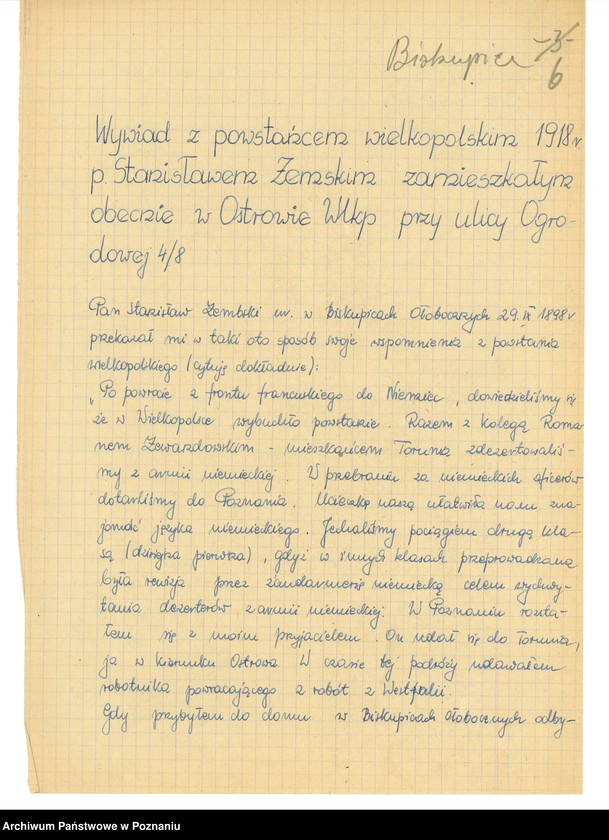 Biskupice -3-
6
Wywiad z powstańcem wielkopolskim 1918r.
p. Stanisławem Zemskim zamieszkałym
obecnie w Ostrowie Wlkp przy ulicy Ogro-
dowej 4/8
Pan Stanisław Zembski ur. w Biskupicach Ołobocznych 29.IX 1898r
przekazał mi w taki oto sposób swoje wspomnienia z powstania
wielkopolskiego (cytuję dokładnie):
"Po powrocie z frontu francuskiego do Niemiec, dowiedzieliśmy się
że w Wielkopolsce wybuchło powstanie. Razem z kolegą Roma-
nem Zewardowskim - mieszkańcem Torunia zdezertowaliś-
my z armii niemieckiej. W przebraniu za niemieckich oficerów
dotarliśmy do Poznania. Ucieczkę naszą ułatwiła nam zna-
jomość języka niemieckiego. Jechaliśmy pociągiem drugą kla-
są (dzisiejsza pierwsza), gdyż w innych klasach przeprowadzana
była rewizja przez żandarmerię niemiecką celem wychwy-
tania dezerterów z armii niemieckiej. W Poznaniu rozsta-
łem się z moim przyjacielem. On udał się do Torunia,
ja w kierunku Ostrowa. W czasie tej podróży udawałem
robotnika powracającego z robót z Westfalii.
Gdy przybyłem do domu w Biskupicach Ołobocznych odby-
Archiwum Państwowe w Poznaniu